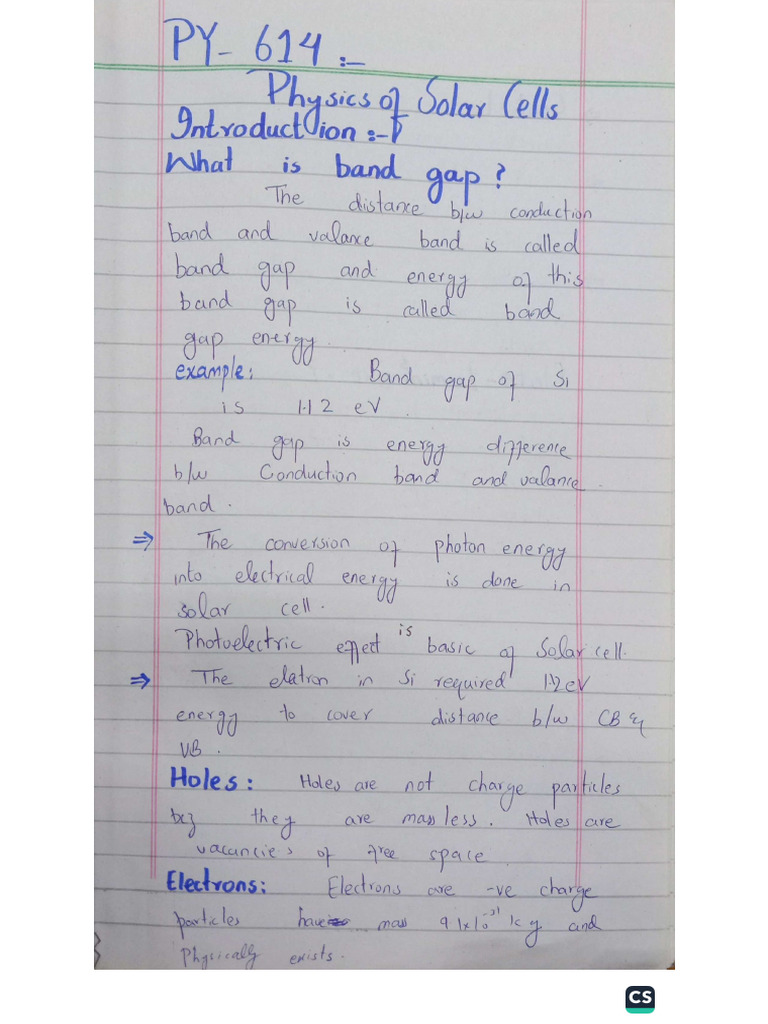 PY- 614 :-
Physics of Solar Cells
Introduction :-
What is band gap ?
The distance b/w conduction
band and valance band is called
band gap and energy of this
band gap is called band
gap energy.
example: Band gap of Si
is 1.12 eV.
Band gap is energy difference
b/w Conduction band and valance
band.
⇒ The conversion of photon energy
into electrical energy is done in
solar cell.
Photoelectric effect is basic of Solar cell.
⇒ The elatron in Si required 1.2 eV
energy to cover distance b/w CB &
VB.
Holes: Holes are not charge particles
bcz they are mass less. Holes are
vacancies of free space.
Electrons: Electrons are -ve charge
particles have mass 9.1x10⁻³¹ kg and
Physically exists.
CS